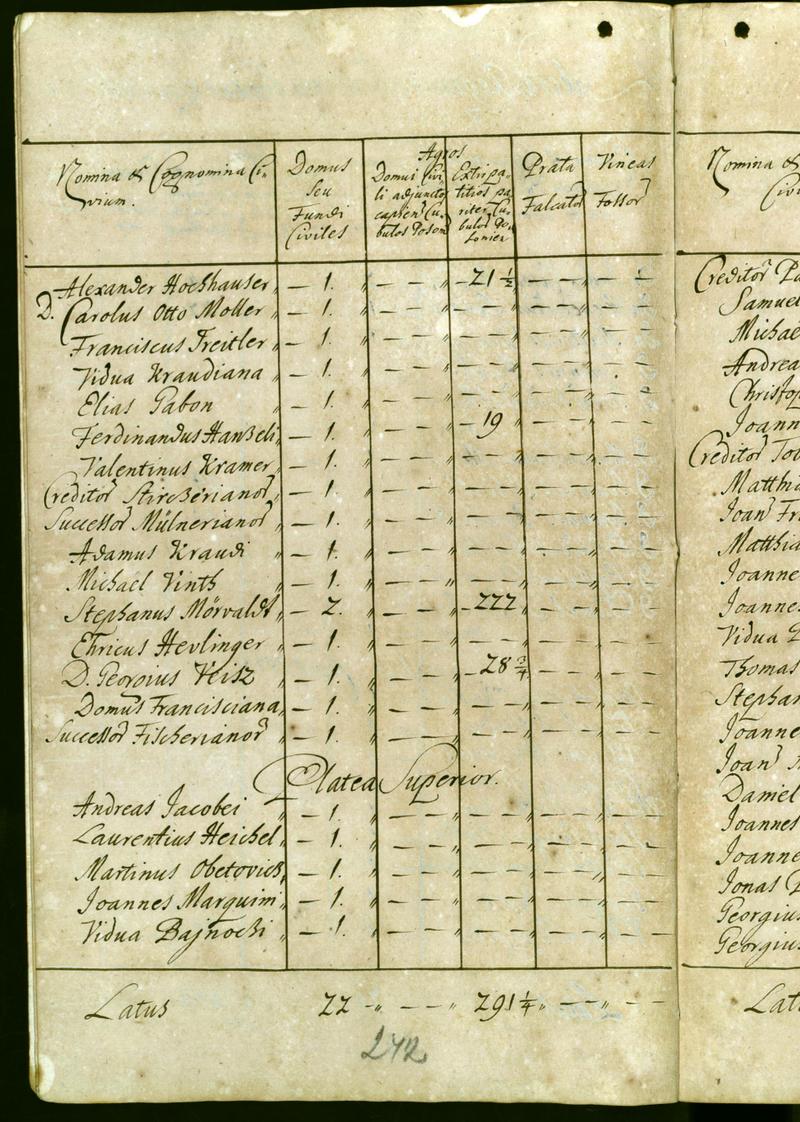 Nomina & Cognomina Ci-
vium.
Domus
seu
Fundi
Civiles
Agros
Domui Civi-
li adjunctos
capien Cu-
bulos Poson
Extirpa-
titios pa-
riter Cu-
bulos Po-
sonien
Prata
Falcator
Vineas
Fossor
Alexander Hochhauser „ — 1. „ — — „ — 21 ½ „ — — „ — —
D. Carolus Otto Moller „ — 1. „ — — „ — — „ — — „ — —
Franciscus Treitler „ — 1. „ — — „ — — „ — — „ — —
Vidua Kraudiana „ — 1. „ — — „ — — „ — — „ — —
Elias Gabon „ — 1. „ — — „ — — „ — — „ — —
Ferdinandus Hanzeli „ — 1. „ — — „ — 19 „ — — „ — —
Valentinus Kramer „ — 1. „ — — „ — — „ — — „ — —
Creditor Stirzerianor „ — 1. „ — — „ — — „ — — „ — —
Successor Mülnerianor „ — 1. „ — — „ — — „ — — „ — —
Adamus Kraudi „ — 1. „ — — „ — — „ — — „ — —
Michael Vinth „ — 1. „ — — „ — — „ — — „ — —
Stephanus Mörvaldt „ — 2. „ — — „ — 222 „ — — „ — —
Ehricus Hevlinger „ — 1. „ — — „ — — „ — — „ — —
D. Georgius Veisz „ — 1. „ — — „ — 28 ¾ „ — — „ — —
Domus Francisciana „ — 1. „ — — „ — — „ — — „ — —
Successor Fischerianor „ — 1. „ — — „ — — „ — — „ — —
Platea Superior.
Andreas Jacobei „ — 1. „ — — „ — — „ — — „ — —
Laurentius Heichel „ — 1. „ — — „ — — „ — — „ — —
Martinus Obetovics „ — 1. „ — — „ — — „ — — „ — —
Joannes Marquini „ — 1. „ — — „ — — „ — — „ — —
Vidua Bajnocki „ — 1. „ — — „ — — „ — — „ — —
Latus 22 — „ — — „ 291 ¼ „ — — „ — —
242
Nomina &
Civi
Creditor
Samuel
Michae
Andrea
Christop
Joann
Creditor
Matthi
Joan Fr
Matthia
Joanne
Joannes
Vidua
Thomas
Stephan
Joanne
Joan
Daniel
Joannes
Joanne
Jonas
Georgius
Georgiu
Lat